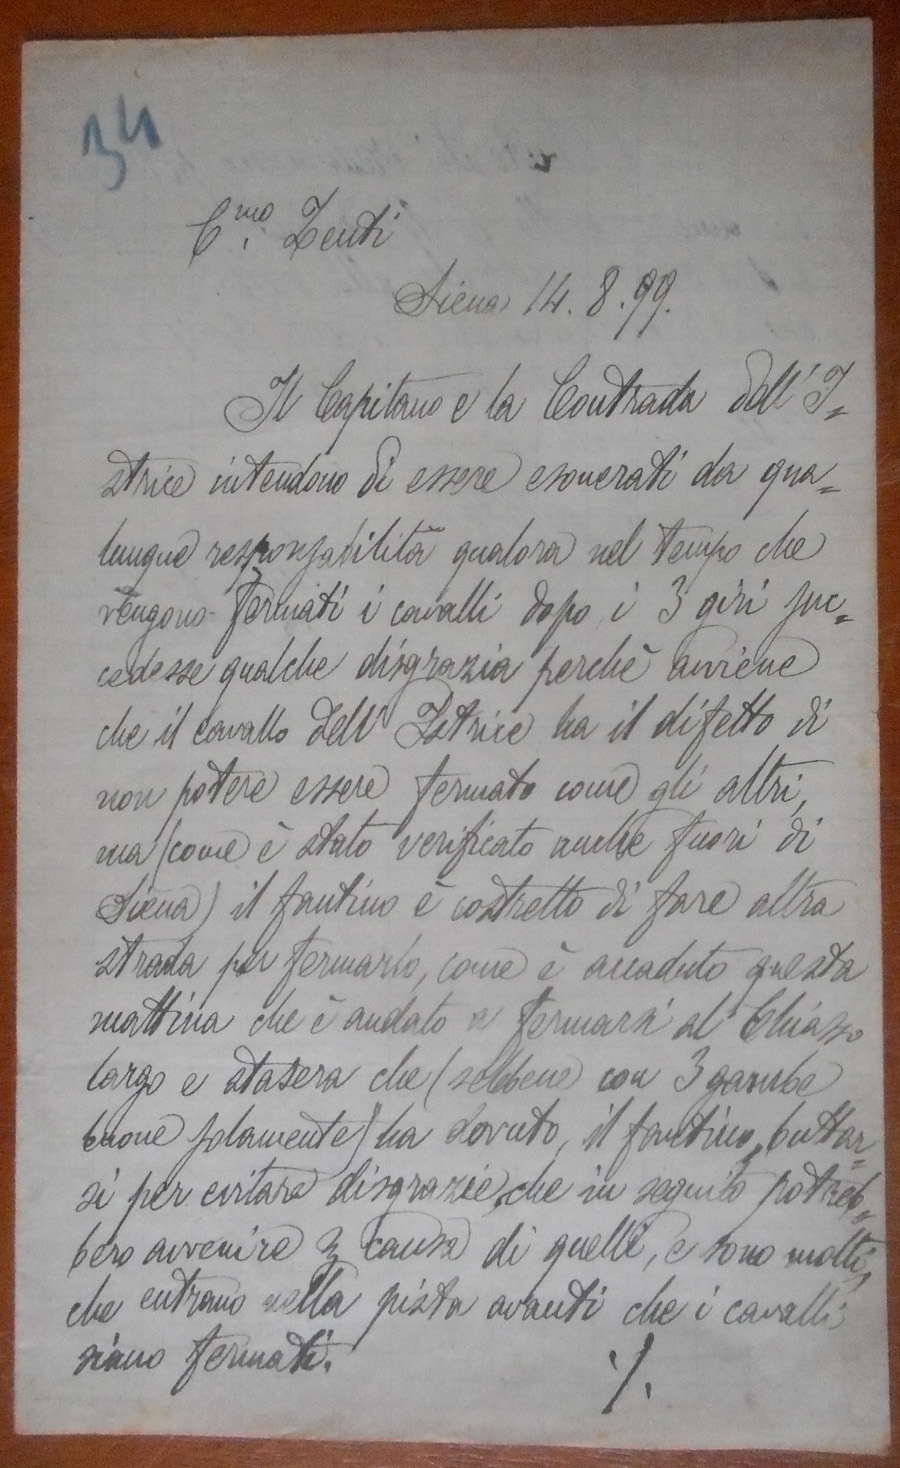 34
C.mo Zenti
Siena 14.8.99.
Il Capitano e la Contrada dell'I=
strice intendono di essere esonerati da qua=
lunque responsabilità qualora nel tempo che
vengono fermati i cavalli dopo i 3 giri suc=
cedesse qualche disgrazia perchè avviene
che il cavallo dell'Istrice ha il difetto di
non potere essere fermato come gli altri,
ma (come è stato verificato anche fuori di
Siena) il fantino è costretto di fare altra
strada per fermarlo, come è accaduto questa
mattina che è andato a fermarsi al Chiasso
largo e stasera che (sebbene con 3 gambe
buone solamente) ha dovuto, il fantino, buttar=
si per evitare disgrazie, che in seguito potreb=
bero avvenire a causa di quelli, e sono molti,
che entrano nella pista avanti che i cavalli
siano fermati.
./.